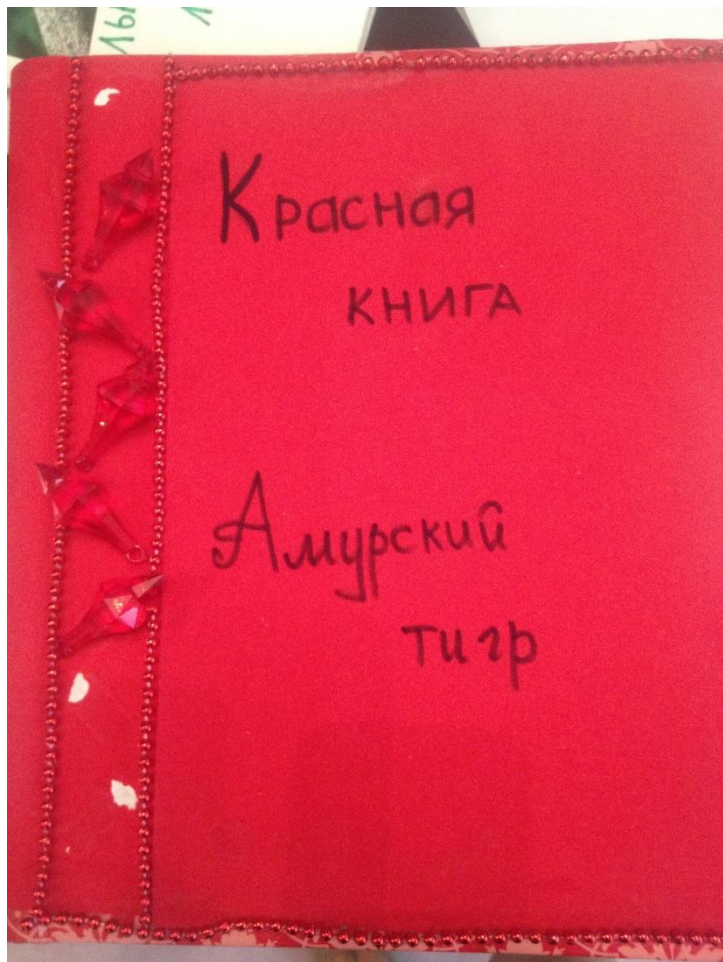 Красная
книга
Амурский
тигр